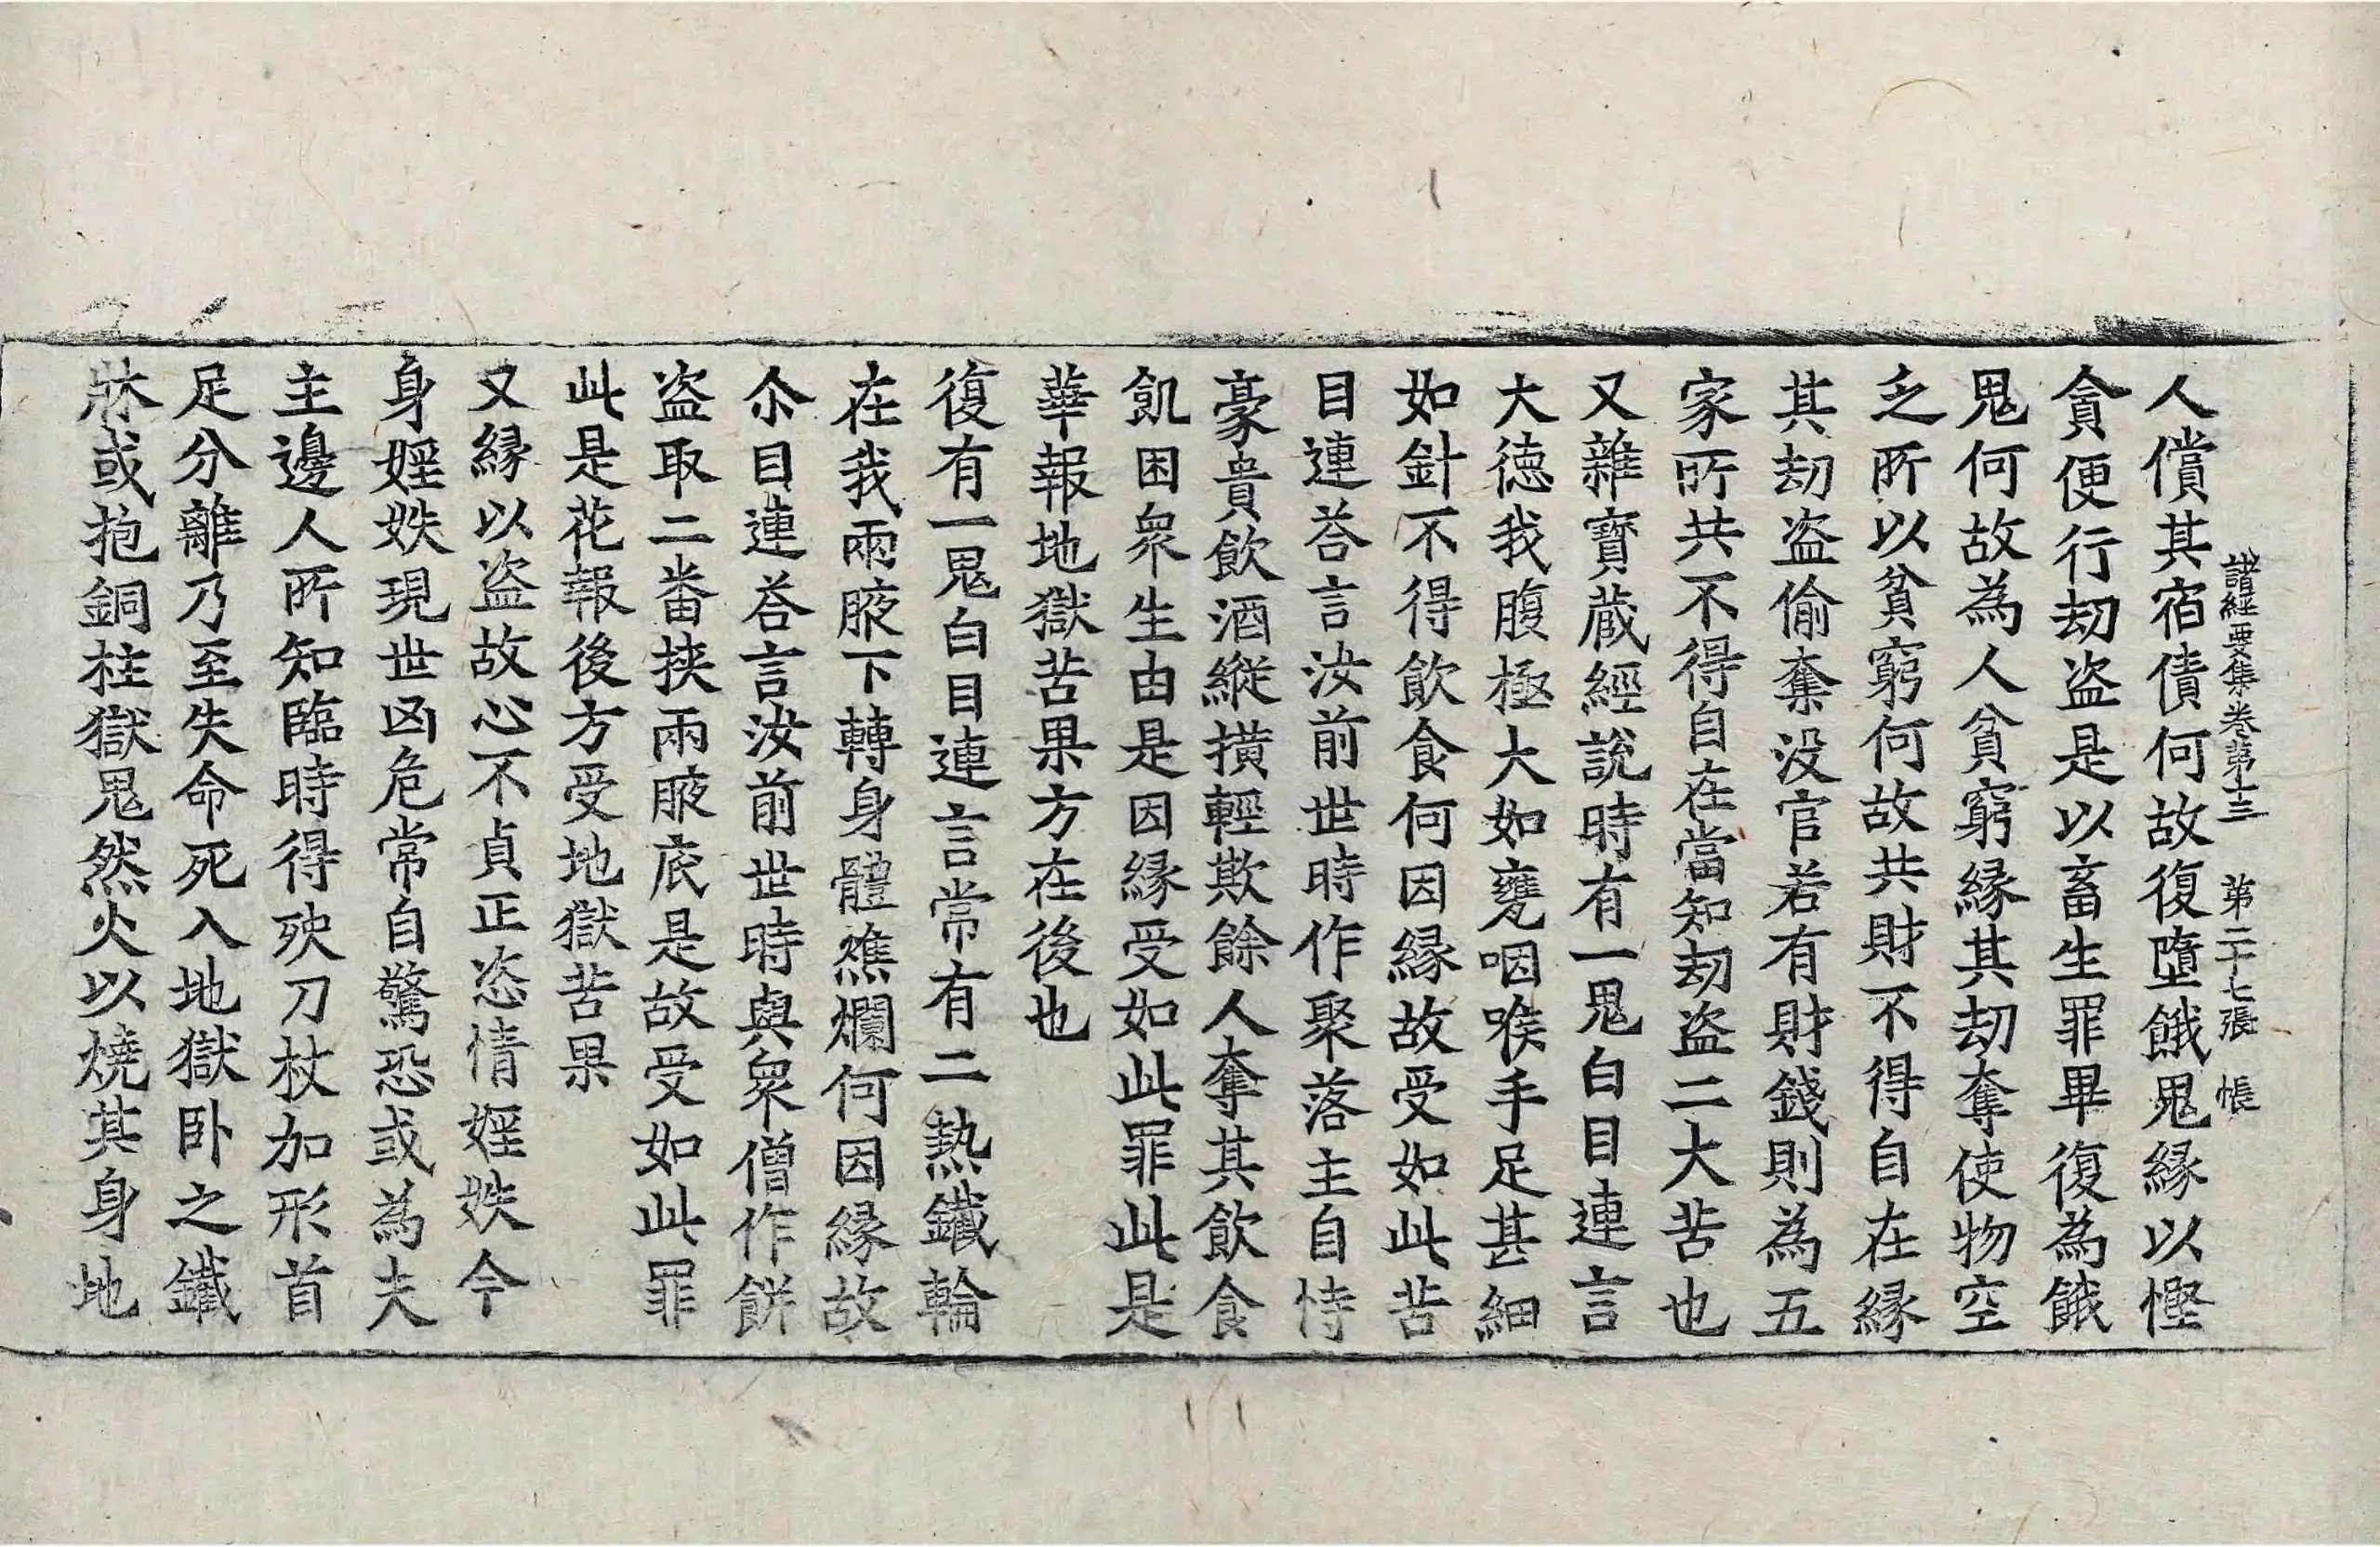 諸經要集卷第十三 第二十七張 帳
人償其宿債何故復墮餓鬼緣以慳
貪便行劫盜是以畜生罪畢復為餓
鬼何故為人貧窮緣其劫奪使物空
乏所以貧窮何故共財不得自在緣
其劫盜偷奪没官若有財錢則為五
家所共不得自在當知劫盜二大苦也
又雜寶藏經說時有一鬼白目連言
大德我腹極大如甕咽喉手足甚細
如針不得飲食何因緣故受如此苦
目連荅言汝前世時作聚落主自恃
豪貴飲酒縱撗輕欺餘人奪其飲食
飢困衆生由是因緣受如此罪此是
華報地獄苦果方在後也
復有一鬼白目連言常有二熱鐵輪
在我兩腋下轉身體燋爛何因緣故
尒目連荅言汝前世時與衆僧作餅
盜取二番挾兩腋底是故受如此罪
此是花報後方受地獄苦果
又緣以盜故心不貞正恣情婬妷今
身婬妷現世凶危常自驚恐或為夫
主邊人所知臨時得殃刀杖加形首
足分離乃至失命死入地獄卧之鐵
牀或抱銅柱獄鬼然火以燒其身地